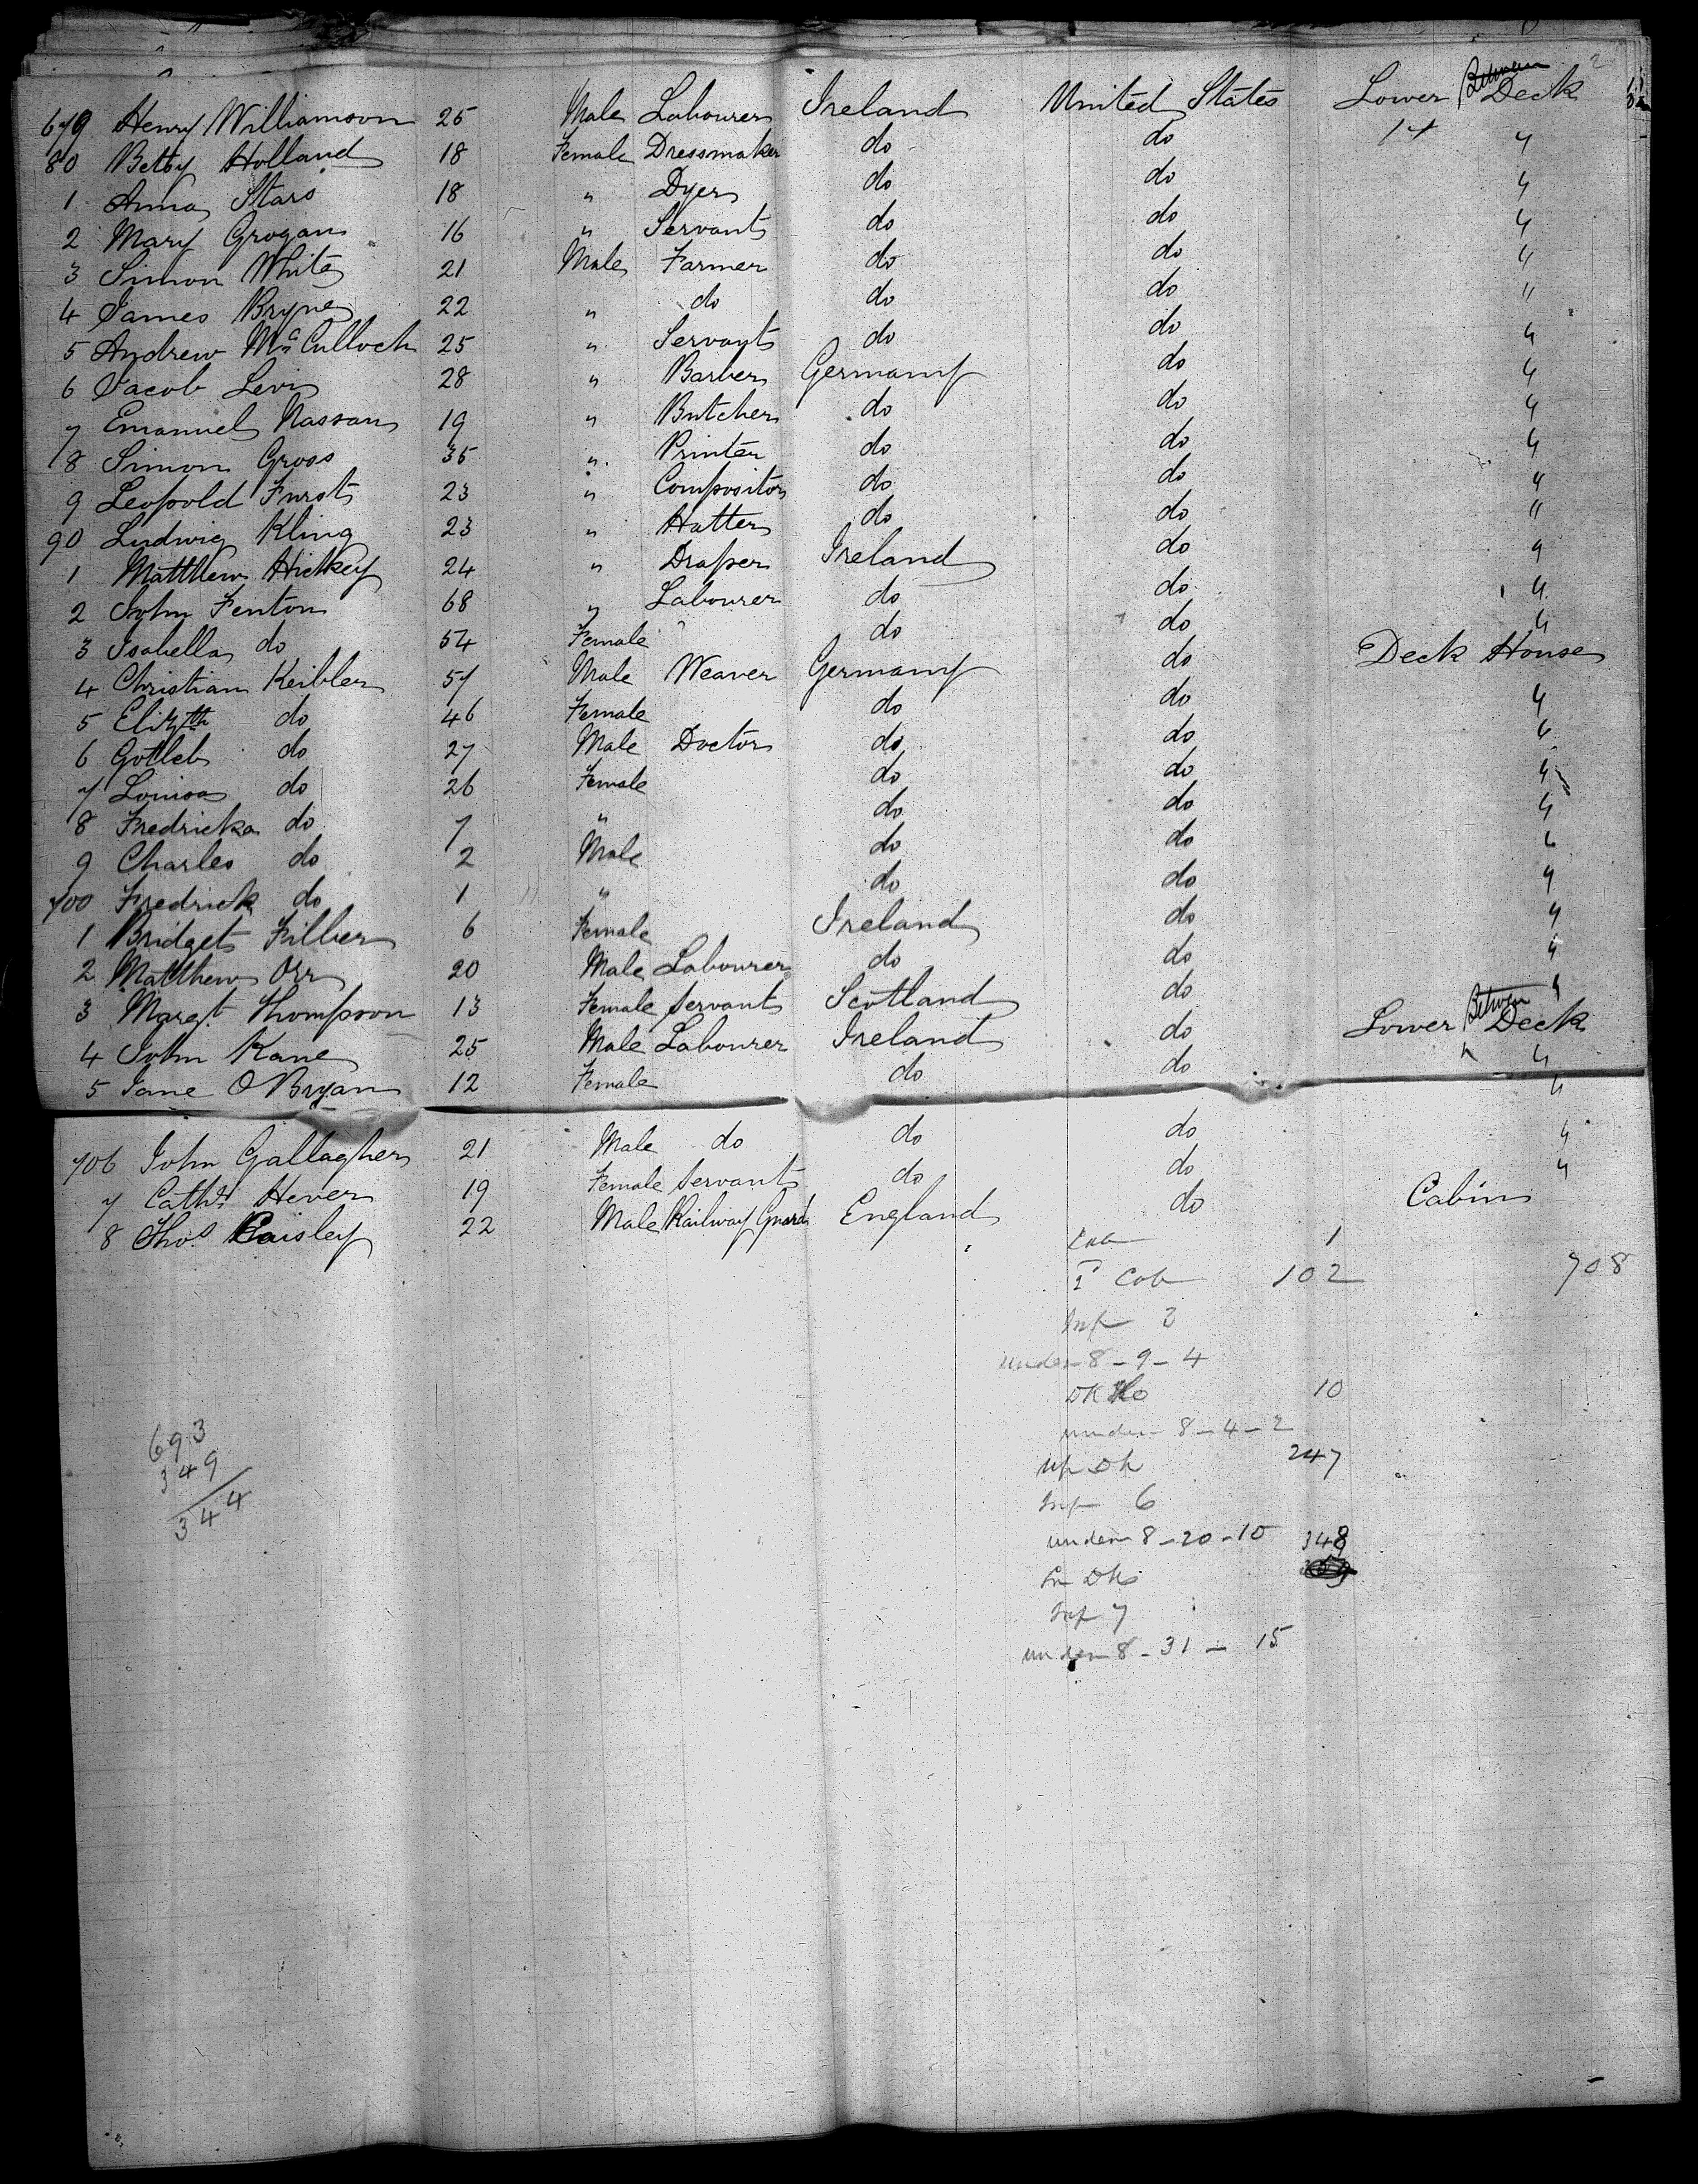 679 Henry Williamson 25 Male Labourer Ireland United States Lower Between Deck
80 Betsy Holland 18 Female Dressmaker do do 14 "
1 Anna Stars 18 " Dyer do do "
2 Mary Grogan 16 " Servant do do "
3 Simon White 21 Male Farmer do do "
4 James Bryne 22 " do do do "
5 Andrew McCulloch 25 " Servant do do "
6 Jacob Levi 28 " Barber Germany do "
7 Emanuel Nassau 19 " Butcher do do "
8 Simon Gross 35 " Printer do do "
9 Leopold Furst 23 " Compositor do do "
90 Ludwig Kling 23 " Hatter do do "
1 Matthew Hickey 24 " Draper Ireland do "
2 John Fenton 68 " Labourer do do "
3 Isabella do 54 Female do do "
4 Christian Keibler 57 Male Weaver Germany do Deck House
5 Elizth do 46 Female do do "
6 Gotleb do 27 Male Doctor do do "
7 Louisa do 26 Female do do "
8 Fredricka do 7 " do do "
9 Charles do 2 Male do do "
700 Fredrick do 1 " do do "
1 Bridget Filber 6 Female Ireland do "
2 Matthew Orr 20 Male Labourer do do "
3 Margt. Thompson 13 Female Servant Scotland do "
4 John Kane 25 Male Labourer Ireland do Lower Between Deck
5 Jane O Bryan 12 Female do do "
706 John Gallagher 21 Male do do do "
7 Cathe Hever 19 Female Servant do do "
8 Thos Paisley 22 Male Railway Guard England do Cabin
Cab 1
2 Cab 102 708
Inf 3
under 8 - 9 - 4
DK Ho 10
under 8 - 4 - 2
693
349
344
Up Dk 247
Inf 6
under 8 - 20 - 10 348
Lr Dk
Inf 7
under 8 - 31 - 15